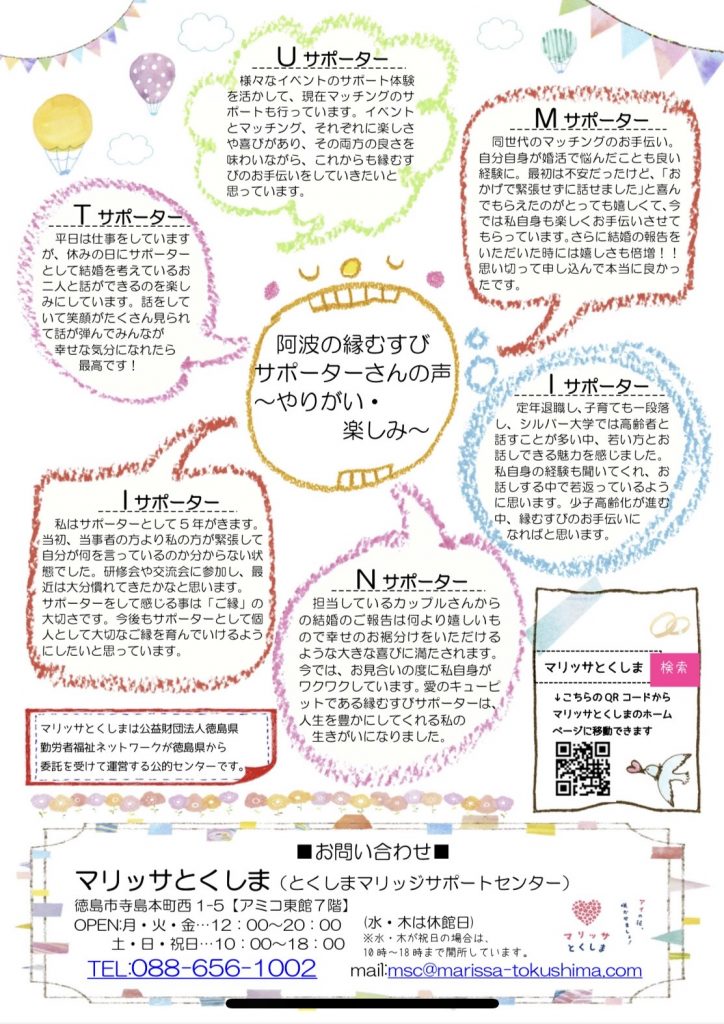 U サポーター
様々なイベントのサポート体験
を活かして、現在マッチングのサ
ポートも行っています。イベント
とマッチング、それぞれに楽しさ
や喜びがあり、その両方の良さを
味わいながら、これからも縁むす
びのお手伝いをしていきたいと
思っています。
M サポーター
同世代のマッチングのお手伝い。
自分自身が婚活で悩んだことも良い
経験に。最初は不安だったけど、「お
かげで緊張せずに話せました」と喜ん
でもらえたのがとっても嬉しくて、今
では私自身も楽しくお手伝いさせて
もらっています。さらに結婚の報告を
いただいた時には嬉しさも倍増!!
思い切って申し込んで本当に良かっ
たです。
T サポーター
平日は仕事をしています
が、休みの日にサポーター
として結婚を考えているお
二人と話ができるのを楽し
みにしています。話をして
いて笑顔がたくさん見られ
て話が弾んでみんなが
幸せな気分になれたら
最高です!
阿波の縁むすび
サポーターさんの声
~やりがい・
楽しみ~
I サポーター
定年退職し、子育ても一段落
し、シルバー大学では高齢者と
話すことが多い中、若い方とお
話しできる魅力を感じました。
私自身の経験も聞いてくれ、お
話しする中で若返っているよう
に思います。少子高齢化が進む
中、縁むすびのお手伝いに
なればと思います。
I サポーター
私はサポーターとして5年がきます。
当初、当事者の方より私の方が緊張して
自分が何を言っているのか分からない状
態でした。研修会や交流会に参加し、最
近は大分慣れてきたかなと思います。
サポーターをして感じる事は「ご縁」の
大切さです。今後もサポーターとして個
人として大切なご縁を育んでいけるよう
にしたいと思っています。
N サポーター
担当しているカップルさんから
の結婚のご報告は何より嬉しい
もので幸せのお裾分けをいただける
ような大きな喜びに満たされます。
今では、お見合いの度に私自身が
ワクワクしています。愛のキューピ
ットである縁むすびサポーターは、
人生を豊かにしてくれる私の
生きがいになりました。
マリッサとくしま 検索
↓こちらのQRコードから
マリッサとくしまのホーム
ページに移動できます
マリッサとくしまは公益財団法人徳島県
勤労者福祉ネットワークが徳島県から
委託を受けて運営する公的センターです。
■お問い合わせ■
マリッサとくしま(とくしまマリッジサポートセンター)
徳島市寺島本町西1-5【アミコ東館7階】
OPEN:月・火・金…12:00~20:00 (水・木は休館日)
土・日・祝日…10:00~18:00
※水・木が祝日の場合は、
10時~18時まで開所しています。
TEL:088-656-1002 mail:msc@marissa-tokushima.com
マリッサ
とくしま
アイの花、
咲かせましょ!